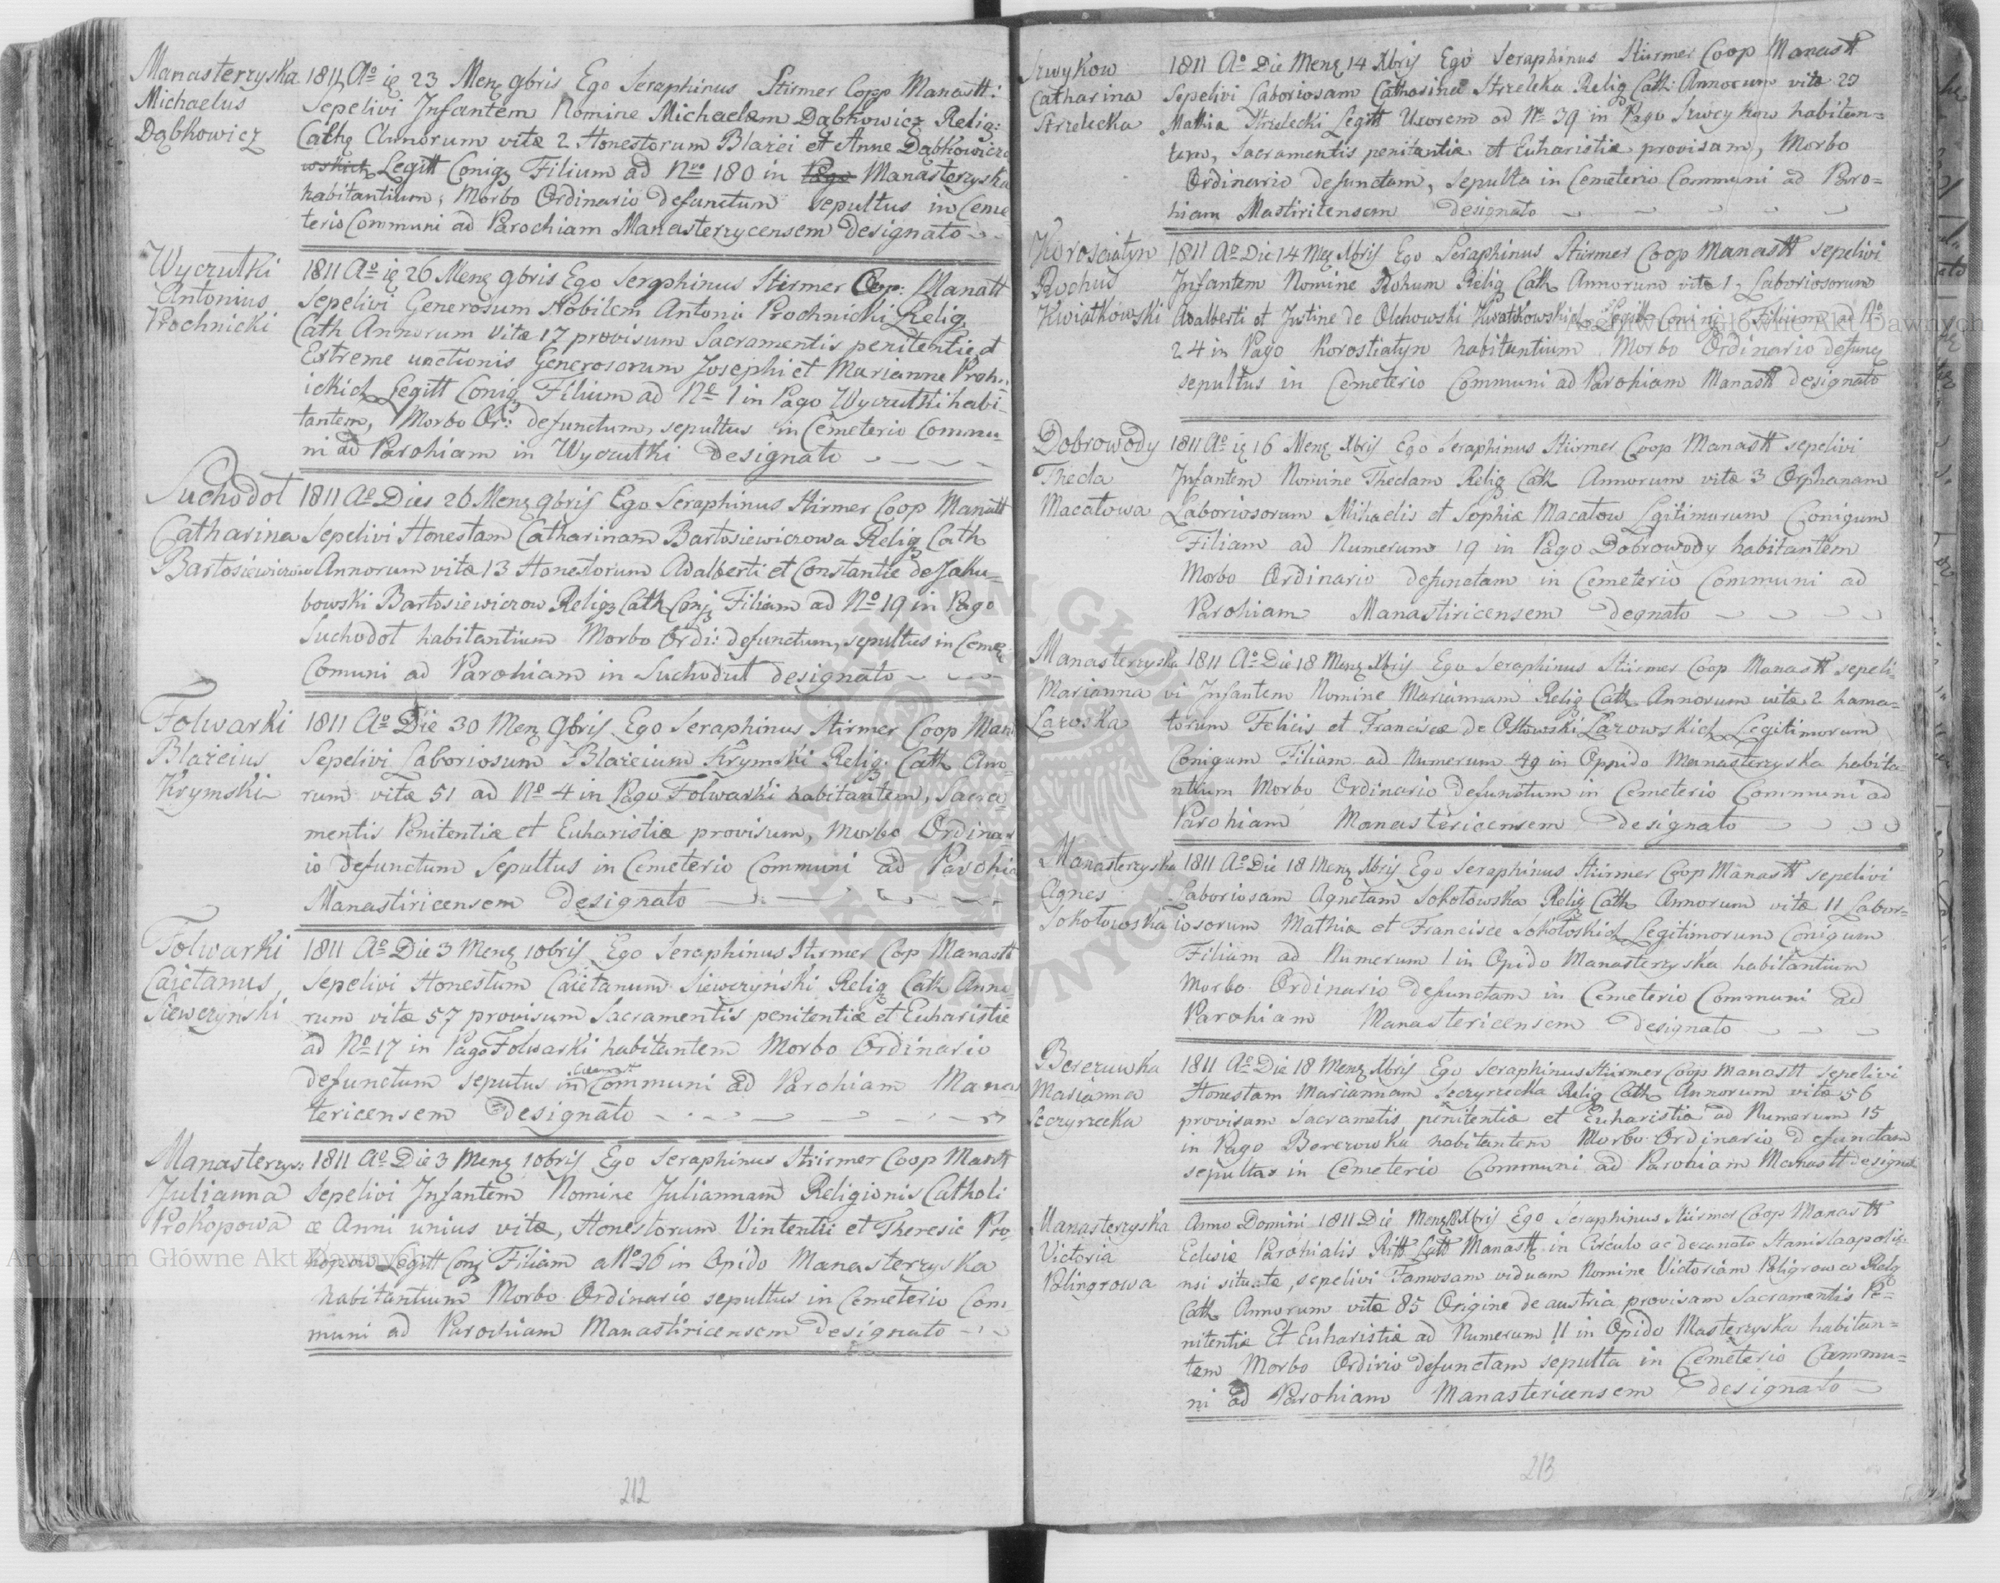 Manasterzyska
Michaelus
Dąbkowicz
1811 Ao ię 23 Menz 9bris Ego Seraphinus Stirmer Copp Manastt:
Sepelivi Infantem Nomine Michaelem Dąbkowicz Relig:
Cathę Annorum vitæ 2 Honestorum Błażei et Anne Dąbkowiczo
Legitt Conigz Filium ad Nro 180 in Pago Manasterzyska
habitantium, Morbo Ordinario defunctum sepultus in Ceme
terio Communi ad Parochiam Manasterzycensem designato
Wyczułki
Antonius
Prochnicki
1811 Ao ię 26 Menz 9bris Ego Seraphinus Stirmer Cop: Manatt
Sepelivi Generosum Nobilem Antoni Prochnicki Relig
Cath Annorum vitæ 17 provisum Sacramentis penitentie et
Extreme unctionis Generosorum Josephi et Marianne Proh
ickich Legitt Conigz Filium ad No 1 in Pago Wyczułki habi-
tantem, Morbo Or: defunctum, sepultus in Cemeterio Commu-
ni ad Parohiam in Wyczułki designato
Suchodoł
Catharina
Bartosiewiczowa
1811 Ao Dies 26 Menz 9brij Ego Seraphinus Stirmer Coop Manatt
Sepelivi Honestam Catharinam Bartosiewiczowa Relig Cath
Annorum vitæ 13 Honestorum Adalberti et Constantie de Jaku-
bowski Bartosiewiczow Religz Cath Conj Filiam ad No 19 in Pago
Suchodoł habitantium Morbo Ordi: defunctum, sepultus in Cemez
Comuni ad Parohiam in Suchoduł designato
Folwarki
Błazeius
Krymski
1811 Ao Die 30 Menz 9brij Ego Seraphinus Stirmer Coop Man
Sepelivi Laboriosum Błazeium Krymski Relig: Cath Ano-
rum vitæ 51 ad No 4 in Pago Folwarki habitantem, Sacra-
mentis Penitentiæ et Euharistiæ provisum, Morbo Ordinar
io defunctum Sepultus in Cemeterio Communi ad Parohia
Manastiricensem designato
Folwarki
Caietanus
Siewczyński
1811 Ao Die 3 Menz 10brij Ego Seraphinus Stirmer Cop Manastt
Sepelivi Honestum Caietanum Siewczyński Relig Cath Anno-
rum vitæ 57 provisum Sacramentis penitentiæ et Euharistie
ad No 17 in Pago Folwarki habitantem Morbo Ordinario
defunctum seputus in Communi ad Parohiam Manas
tericensem designato
Manasterzys:
Julianna
Prokopowa
1811 Ao Die 3 Menz 10brij Ego Seraphinus Stirmer Coop Mantt
Sepelivi Infantem Nomine Juliannam Religionis Catholi
cæ Anni unius vitæ, Honestorum Vintentii et Theresie Pro
kopow Legitt Conj Filiam a No 26 in Opido Manasterzyska
habitantium Morbo Ordinario sepultus in Cemeterio Com
muni ad Parochiam Manastiricensem designato
212
Szwykow
Catharina
Strzelecka
1811 Ao Die Menz 14 Xbrij Ego Seraphinus Stirmer Coop Manastt
Sepelivi Laboriosam Catharina Strzelcka Relig Cath: Annorum vitæ 29
Mathia Strzelecki Legitt Uxorem ad No 39 in Pago habitan-
tem, Sacramentis penitantiæ et Euharistiæ provisam, Morbo
Ordinario defunctam, sepulta in Cemeterio Communi ad Paro-
hiam Mastiritensem designato
Korosciatyn
Rochus
Kwiatkowski
1811 Ao Die 14 Mez Xbrij Ego Seraphinus Stirmer Coop Manastt sepelivi
Infantem Nomine Rohum Relig Cath Annorum vitæ 1, Laboriosorum
Adalberti et Justine de Olchowski Kwatkowskich Legitt Conigz Filium ad No
24 in Pago Korostiatyn habitantium Morbo Ordinario defunct
sepultus in Cemeterio Communi ad Parohiam Manastt designato
Dobrowody
Theda
Macałowa
1811 Ao ię 16 Menz Xbrij Ego Seraphinus Stirmer Coop Manastt sepelivi
Infantem Nomine Thedam Relig Cath Annorum vitæ 3 Orphanam
Laboriosorum Mihaelis et Sophiæ Macałow Lgitimorum Conigum
Filiam ad Numerum 19 in Pago Dobrowody habitantem
Morbo Ordinario defunctam in Cemeterio Communi ad
Parohiam Manastiricensem degnato
Manasterzyska
Marianna
Łazowska
1811 Ao Die 18 Menz Xbrij Ego Seraphinus Stirmer Coop Manastt sepeli-
vi Infantem Nomine Mariannam Relig Cath Annorum vitæ 2 hama-
torum Felicis et Francisce de Łazowskich Legitimorum
Conigum Filiam ad Numerum 49 in Oppido Manasterzyska habita-
ntium Morbo Ordinario defunctum in Cemeterio Communi ad
Parohiam Manastericensem designato
Manasterzyska
Agnes
Sokołowska
1811 Ao Die 18 Menz Xbrij Ego Seraphinus Stirmer Coop Manastt sepelivi
Laboriosam Agnetam Sokołowska Relig Cath Annorum vitæ 11 Labor-
iosorum Mathiæ et Francisce Sokołoskich Legitimorum Conigum
Filiam ad Numerum 1 in Opido Manasterzyska habitantium
Morbo Ordinario defunctam in Cemeterio Communi ad
Parohiam Manastericensem designato
Berezuwka
Marianna
Seczyrzecka
1811 Ao Die 18 Menz Xbrij Ego Seraphinus Stirmer Coop Manastt sepelivi
Honestam Mariannam Seczyrzecka Relig Cath Annorum vitæ 56
provisam Sacrametis penitentiæ et Euharistiæ ad Numerum 15
in Pago Berezowka habitantem Morbo Ordinario defunctam
sepultas in Cemeterio Communi ad Parohiam Manastt designat
Manasterzyska
Victoria
Polingrowa
Anno Domini 1811 Die Menz Xbrij Ego Seraphinus Stirmer Coop Manastt
Eclesiæ Parohialis Ritt Latt Manastt in Circulo ac decanato Stanislaapoli-
nsi situatæ, sepelivi Famosam viduam Nomine Victoriam Poligrowa Relig
Cath Annorum vitæ 85 Origine de austria provisam Sacramentis Pe-
nitentiæ Et Euharistiæ ad Numerum 11 in Opido Masterzyska habitan-
tem Morbo Ordirio defunctam sepulta in Cemeterio Commu-
ni ad Parohiam Manastericensem designato
213
Archiwum Główne Akt Dawnych
Archiwum Główne Akt Dawnych